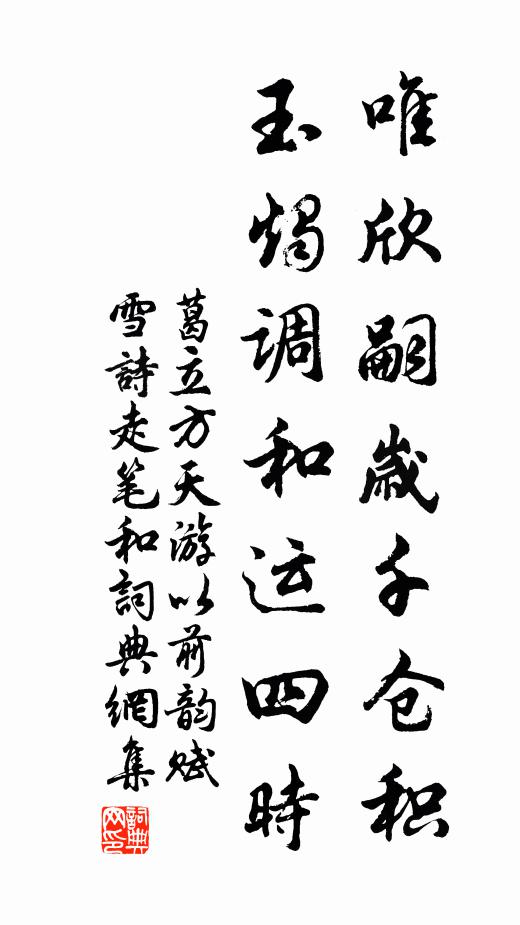 唯欣嗣歲千仓积
玉燭调和运四時
葛立方天游以前韵赋
雪詩走笔和詞典網集
詞典网印